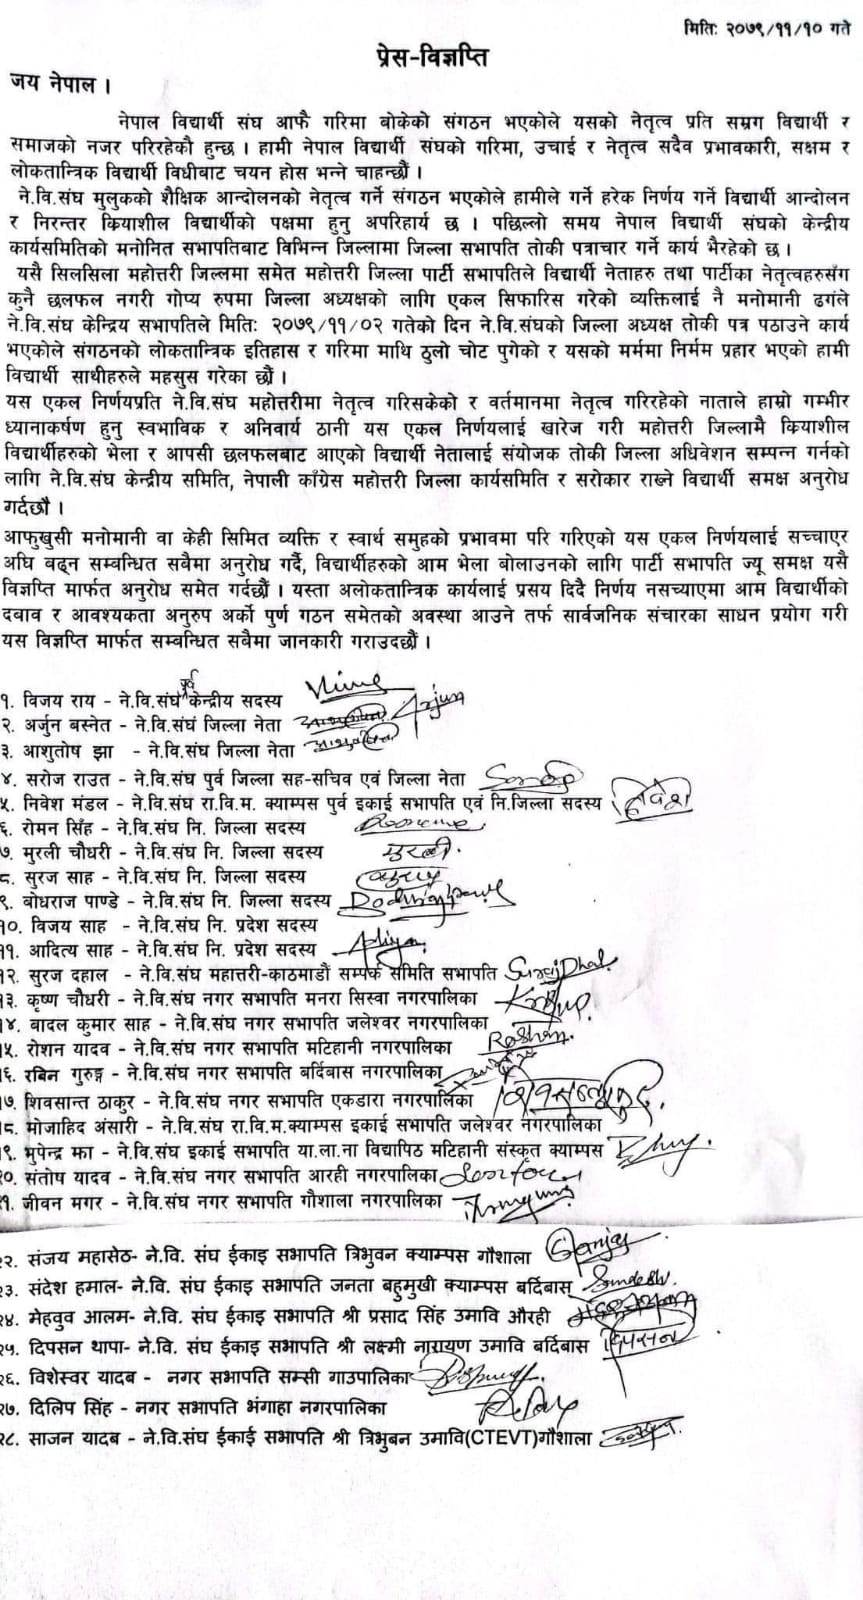 मितिः २०७९/११/१० गते
प्रेस-विज्ञप्ति
जय नेपाल ।
नेपाल विद्यार्थी संघ आफै गरिमा बोकेको संगठन भएकोले यसको नेतृत्व प्रति सम्रग विद्यार्थी र
समाजको नजर परिरहेकौ हुन्छ । हामी नेपाल विद्यार्थी संघको गरिमा, उचाई र नेतृत्व सदैव प्रभावकारी, सक्षम र
लोकतान्त्रिक विद्यार्थी विधीबाट चयन होस भन्ने चाहन्छौं ।
ने.वि.संघ मुलुकको शैक्षिक आन्दोलनको नेतृत्व गर्ने संगठन भएकोले हामीले गर्ने हरेक निर्णय गर्ने विद्यार्थी आन्दोलन
र निरन्तर कियाशील विद्यार्थीको पक्षमा हुनु अपरिहार्य छ । पछिल्लो समय नेपाल विद्यार्थी संघको केन्द्रीय
कार्यसमितिको मनोनित सभापतिबाट विभिन्न जिल्लामा जिल्ला सभापति तोकी पत्राचार गर्ने कार्य भैरहेको छ ।
यसै सिलसिला महोत्तरी जिल्लमा समेत महोत्तरी जिल्ला पार्टी सभापतिले विद्यार्थी नेताहरु तथा पार्टीका नेतृत्वहरुसँग
कुनै छलफल नगरी गोप्य रुपमा जिल्ला अध्यक्षको लागि एकल सिफारिस गरेको व्यक्तिलाई नै मनोमानी ढगंले
ने.वि.संघ केन्द्रिय सभापतिले मितिः २०७९/११/०२ गतेको दिन ने.वि.संघको जिल्ला अध्यक्ष तोकी पत्र पठाउने कार्य
भएकोले संगठनको लोकतान्त्रिक इतिहास र गरिमा माथि ठुलो चोट पुगेको र यसको मर्ममा निर्मम प्रहार भएको हामी
विद्यार्थी साथीहरुले महसुस गरेका छौं ।
यस एकल निर्णयप्रति ने.वि.संघ महोत्तरीमा नेतृत्व गरिसकेको र वर्तमानमा नेतृत्व गरिरहेको नाताले हाम्रो गम्भीर
ध्यानाकर्षण हुनु स्वभाविक र अनिवार्य ठानी यस एकल निर्णयलाई खारेज गरी महोत्तरी जिल्लामै कियाशील
विद्यार्थीहरुको भेला र आपसी छलफलबाट आएको विद्यार्थी नेतालाई संयोजक तोकी जिल्ला अधिवेशन सम्पन्न गर्नको
लागि ने.वि.संघ केन्द्रीय समिति, नेपाली काँग्रेस महोत्तरी जिल्ला कार्यसमिति र सरोकार राख्ने विद्यार्थी समक्ष अनुरोध
गर्दछौ ।
आफुखुसी मनोमानी वा केही सिमित व्यक्ति र स्वार्थ समुहको प्रभावमा परि गरिएको यस एकल निर्णयलाई सच्चाएर
अघि बढ्न सम्बन्धित सबैमा अनुरोध गर्दै, विद्यार्थीहरुको आम भेला बोलाउनको लागि पार्टी सभापति ज्यू समक्ष यसै
विज्ञप्ति मार्फत अनुरोध समेत गर्दछौं । यस्ता अलोकतान्त्रिक कार्यलाई प्रसय दिदै निर्णय नसच्याएमा आम विद्यार्थीको
दवाव र आवश्यकता अनुरुप अर्को पुर्ण गठन समेतको अवस्था आउने तर्फ सार्वजनिक संचारका साधन प्रयोग गरी
यस विज्ञप्ति मार्फत सम्बन्धित सबैमा जानकारी गराउदछौं ।
१. विजय राय - ने.वि.संघ पूर्व केन्द्रीय सदस्य
२. अर्जुन बस्नेत - ने.वि.संघं जिल्ला नेता Arjun
३. आशुतोष झा - ने.वि.संघ जिल्ला नेता
४. सरोज राउत - ने.वि.संघ पुर्व जिल्ला सह-सचिव एवं जिल्ला नेता
५. निवेश मंडल - ने.वि.संघ रा.वि.म. क्याम्पस पुर्व इकाई सभापति एवं नि.जिल्ला सदस्य निवेश
६. रोमन सिँह - ने.वि.संघ नि. जिल्ला सदस्य
७. मुरली चौधरी - ने.वि.संघ नि. जिल्ला सदस्य मुरली.
८. सुरज साह - ने.वि.संघ नि. जिल्ला सदस्य
९. बोधराज पाण्डे - ने.वि.संघ नि. जिल्ला सदस्य
१०. विजय साह - ने.वि.संघ नि. प्रदेश सदस्य
११. आदित्य साह - ने.वि.संघ नि. प्रदेश सदस्य
१२. सुरज दहाल - ने.वि.संघ महात्तरी-काठमाडौं सम्पर्क समिति सभापति
१३. कृष्ण चौधरी - ने.वि.संघ नगर सभापति मनरा सिस्वा नगरपालिका
१४. बादल कुमार साह - ने.वि.संघ नगर सभापति जलेश्वर नगरपालिका
१५. रोशन यादव - ने.वि.संघ नगर सभापति मटिहानी नगरपालिका Roshan.
१६. रबिन गुरुङ्ग - ने.वि.संघ नगर सभापति बर्दिबास नगरपालिका
१७. शिवसान्त ठाकुर - ने.वि.संघ नगर सभापति एकडारा नगरपालिका
१८. मोजाहिद अंसारी - ने.वि.संघ रा.वि.म.क्याम्पस इकाई सभापति जलेश्वर नगरपालिका
१९. भुपेन्द्र झा - ने.वि.संघ इकाई सभापति या.ला.ना विद्यापिठ मटिहानी संस्कृत क्याम्पस
२०. सतोष यादव - ने.वि.संघ नगर सभापति आरही नगरपालिका
२१. जीवन मगर - ने.वि.संघ नगर सभापति गौशाला नगरपालिका
२२. संजय महासेठ- ने.वि. संघ ईकाइ सभापति त्रिभुवन क्याम्पस गौशाला Sanjay
२३. संदेश हमाल- ने.वि. संघ ईकाइ सभापति जनता बहुमुखी क्याम्पस बर्दिबास Sandesh.
२४. मेहवुव आलम- ने.वि. संघ ईकाइ सभापति श्री प्रसाद सिंह उमावि औरही
२५. दिपसन थापा- ने.वि. संघ ईकाइ सभापति श्री लक्ष्मी नारायण उमावि बर्दिबास
२६. विशेस्वर यादब - नगर सभापति सम्सी गाउपालिका
२७. दिलिप सिंह - नगर सभापति भंगाहा नगरपालिका
२८. साजन यादब - ने.वि.संघ ईकाई सभापति श्री त्रिभुबन उमावि(CTEVT)गौशाला